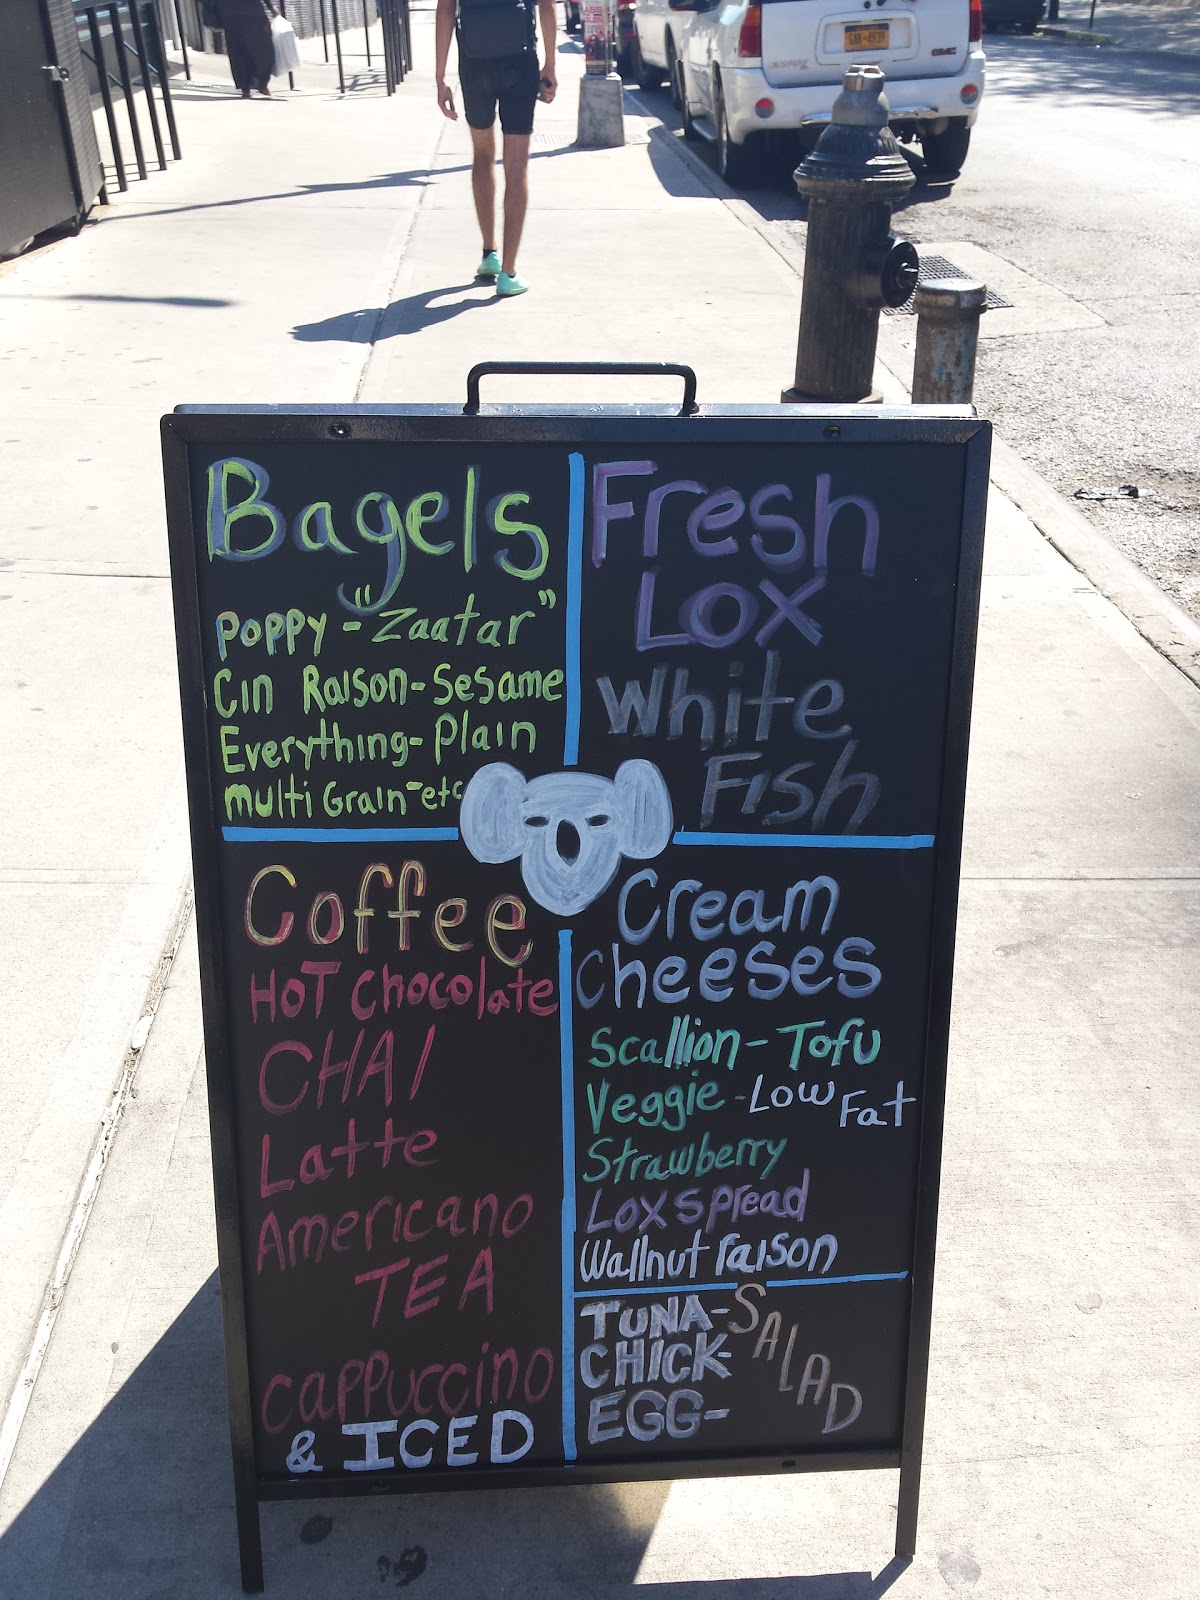 Bagels
Poppy - "Zaatar"
Cin Raison - Sesame
Everything - Plain
multi Grain - etc
Fresh
Lox
White
Fish
Coffee
HOT chocolate
CHAI
Latte
Americano
TEA
cappuccino
& ICED
Cream
Cheeses
Scallion - Tofu
Veggie - Low Fat
Strawberry
Lox spread
Wallnut raison
TUNA- SALAD
CHICK-
EGG-
GMC